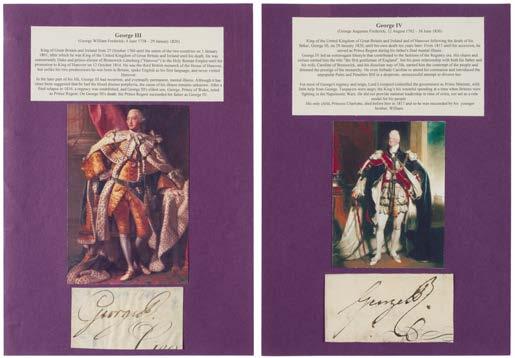 George III
(George William Frederick; 4 June 1738 – 29 January 1820)
King of Great Britain and Ireland from 25 October 1760 until the union of the two countries on 1 January
1801, after which he was King of the United Kingdom of Great Britain and Ireland until his death. He was
concurrently Duke and prince-elector of Brunswick-Lüneburg ("Hanover") in the Holy Roman Empire until his
promotion to King of Hanover on 12 October 1814. He was the third British monarch of the House of Hanover,
but unlike his two predecessors he was born in Britain, spoke English as his first language, and never visited
Hanover.
In the later part of his life, George III had recurrent, and eventually permanent, mental illness. Although it has
since been suggested that he had the blood disease porphyria, the cause of his illness remains unknown. After a
final relapse in 1810, a regency was established, and George III's eldest son, George, Prince of Wales, ruled
as Prince Regent. On George III's death, the Prince Regent succeeded his father as George IV.
George
George IV
(George Augustus Frederick; 12 August 1762 – 26 June 1830)
King of the United Kingdom of Great Britain and Ireland and of Hanover following the death of his
father, George III, on 29 January 1820, until his own death ten years later. From 1811 until his accession, he
served as Prince Regent during his father's final mental illness.
George IV led an extravagant lifestyle that contributed to the fashions of the Regency era. His charm and
culture earned him the title "the first gentleman of England", but his poor relationship with both his father and
his wife, Caroline of Brunswick, and his dissolute way of life, earned him the contempt of the people and
dimmed the prestige of the monarchy. He even forbade Caroline to attend his coronation and introduced the
unpopular Pains and Penalties Bill in a desperate, unsuccessful attempt to divorce her.
For most of George's regency and reign, Lord Liverpool controlled the government as Prime Minister, with
little help from George. Taxpayers were angry the King's his wasteful spending at a time when Britons were
fighting in the Napoleonic Wars. He did not provide national leadership in time of crisis, nor act as a role
model for his people.
His only child, Princess Charlotte, died before him in 1817 and so he was succeeded by his younger
brother, William.
George R